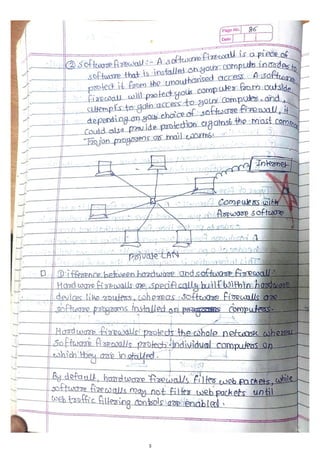 Page No. 86
Date
② Software firewall :- A software firewall is a piece of
software that is installed on your computer in order to
protect it from the unauthorised access. A software
firewall will protect your computer from outside
attempts to gain access to your computer, and,
depending on your choice of software firewall, it
could also provide protection against the most common
Trojan programs or mail worms.
Internet
Computers with
firewall software
Private LAN
Difference between hardware and software firewall:-
Hardware firewalls are specifically built within hardware
devices like routers, whereas software firewalls are
software programs installed on computers.
Hardware firewalls protects the whole network whereas
software firewalls protects individual computers on
which they are installed.
By default, hardware firewalls filter web packets, while
software firewalls may not filter web packets until
web traffic filtering controls are enabled.